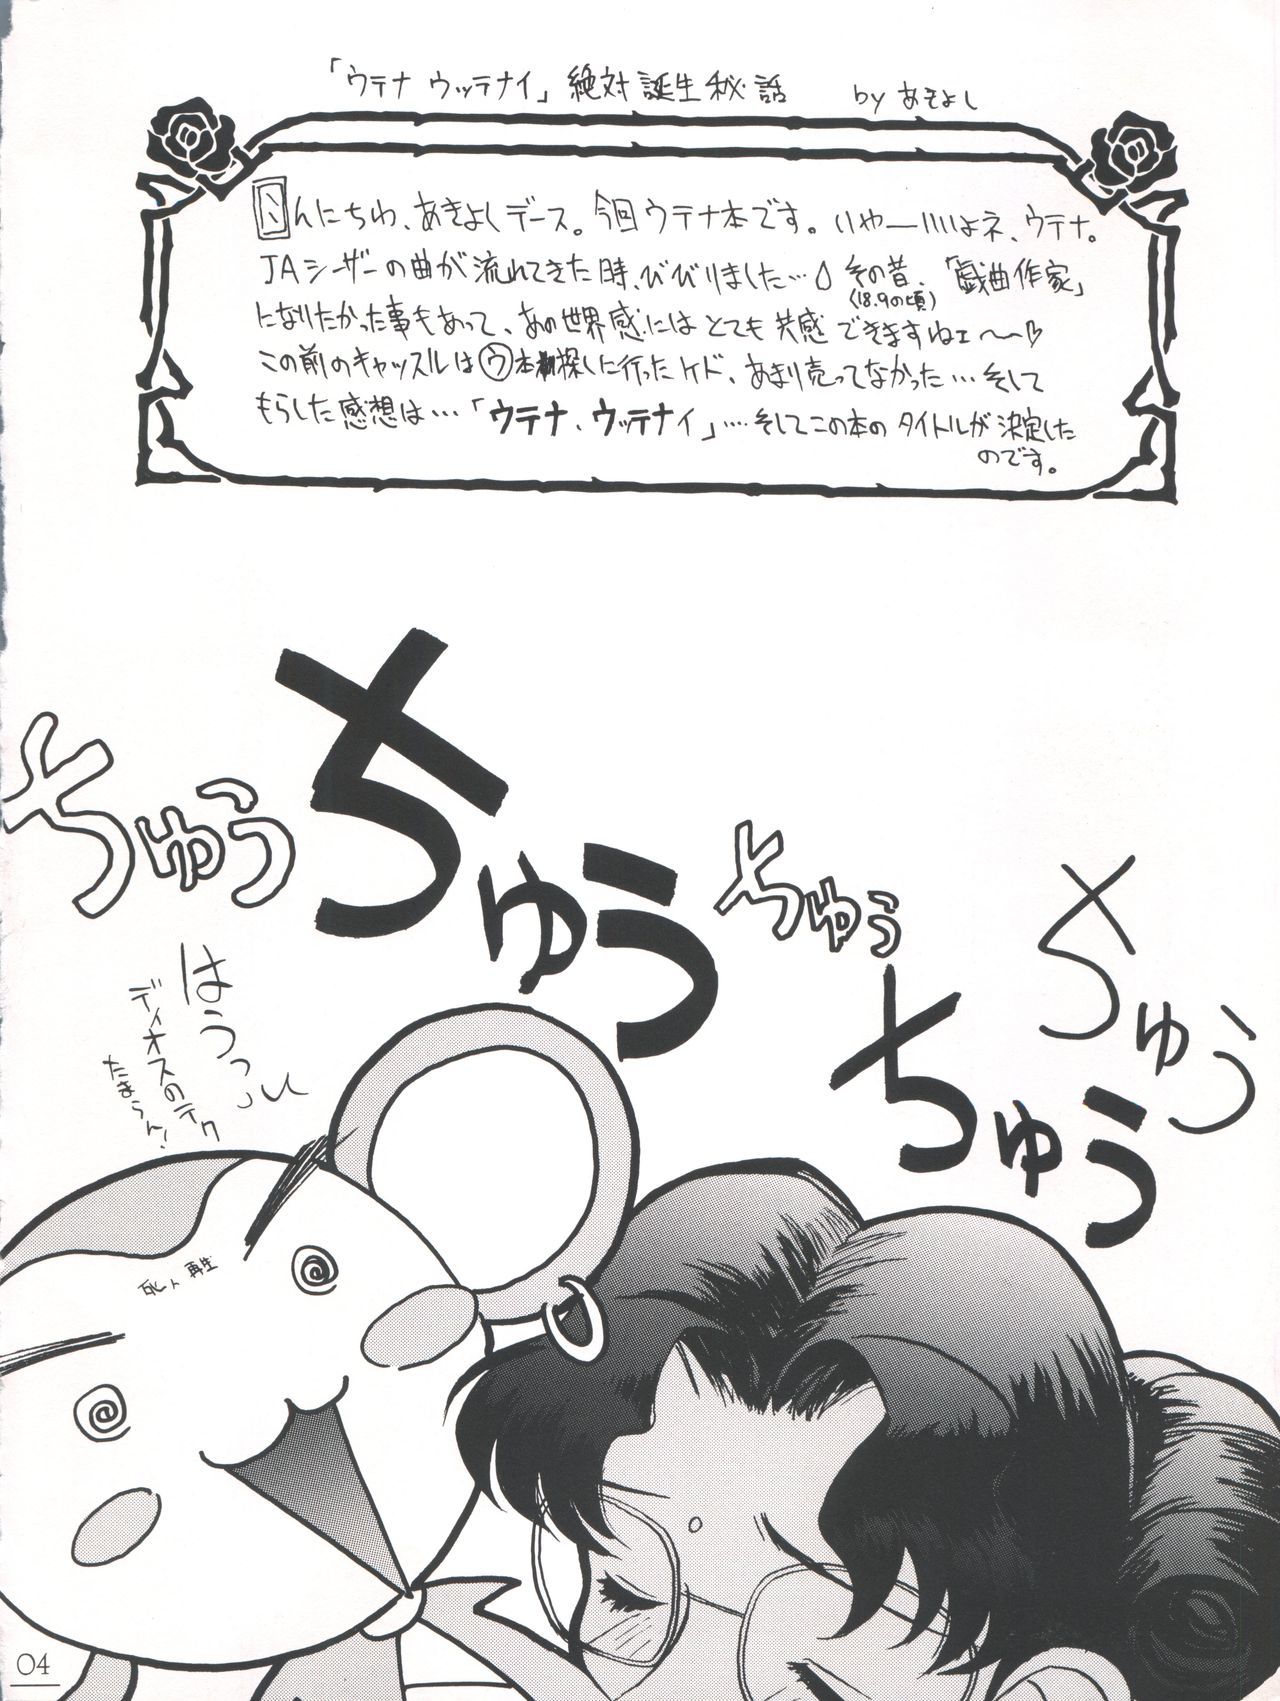 「ウテナ ウッテナイ」絶対誕生秘話 by あきよし
こんにちわ、あきよしデース。今回ウテナ本です。いやーいいよネ、ウテナ。
JAシーザーの曲が流れてきた時、びびりました…その昔、「戯曲作家」
(18.9の頃)
になりたかった事もあって、あの世界感にはとても共感できますねェ〜♡
この前のキャッスルは㋒本探しに行ったケド、あまり売ってなかった…そして
もらした感想は…「ウテナ、ウッテナイ」…そしてこの本のタイトルが決定した
のです。
ちゅう
ちゅう
ちゅう
ちゅう
ちゅう
はうっ
ディオスのテク
たまらん！
再生
04